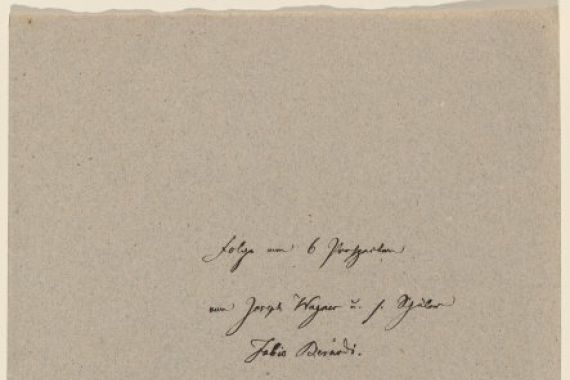 Folge von 6 Prospecten
von Joseph Wagner u. s. Schüler
Fabio Berardi.